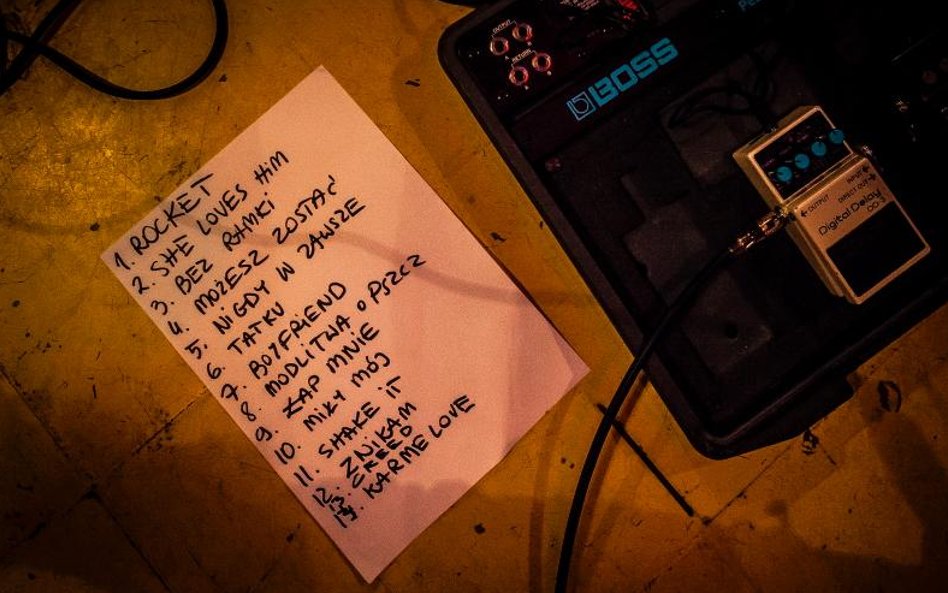 1. ROCKET
2. SHE LOVES HIM
3. BEZ RAMKI
4. MOŻESZ ZOSTAĆ
5. NIGDY W ZAWSZE
6. TATKU
7. BOYFRIEND
8. MODLITWA O PSZCZ
9. ŁAP MNIE
10. MIŁY MÓJ
11. SHAKE IT
12. ZNIKAM
13. CREED
14. KARMELOVE
OUTPUT
RETURN
BOSS
INPUT
OUTPUT
DIRECT OUT
Digital Delay
DD-3